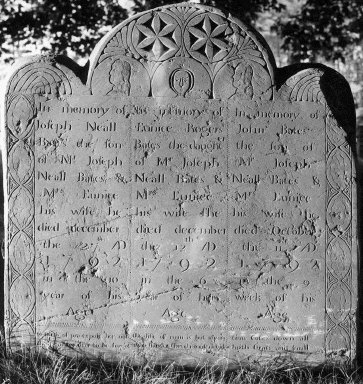 In memory of
Joseph Neall
Bates the son
of Mr Joseph
Neall Bates &
Mrs Eunice
his wife he
died december
the 12 AD
179
in the
year of his
Age
In memory of
Eunice Rogers
Bates the
of Mr Joseph
Neall Bates &
Mrs Eunice
his wife she
died december
the 12 AD
1792
in the 6
year of her
Age
In memory of
John Bates
the son of
Mr Joseph
Neall Bates &
Mrs Eunice
his wife He
died October
the AD
179
in the 9
week of his
Age
of man is but cuts down all
both Great and small